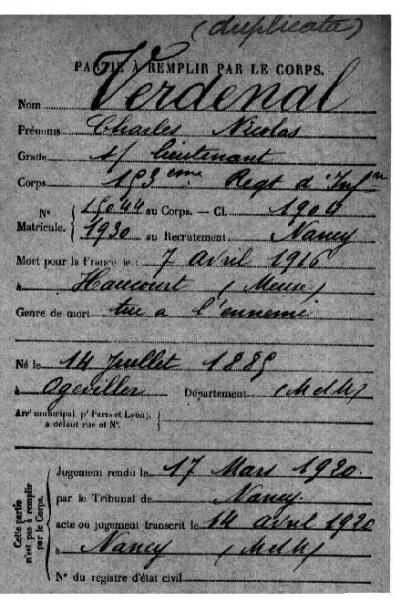 (duplicata)
PARTIE À REMPLIR PAR LE CORPS.
Nom Verdenal
Prénoms Charles Nicolas
Grade s/ lieutenant
Corps 153 ème Regt d'Inf ie
N° Matricule. { 15044 au Corps. — Cl. 1904
1930 au Recrutement Nancy
Mort pour la France le : 7 avril 1916
à Haucourt (Meuse)
Genre de mort tué a l'ennemi
Né le 14 Juillet 1885
à Ogeviller Département (M et M)
Arrt municipal pr Paris et Lyon),
à défaut rue et N°.
Cette partie n'est pas à remplir par le Corps.
Jugement rendu le 17 Mars 1920.
par le Tribunal de Nancy.
acte ou jugement transcrit le 14 avril 1920
à Nancy (M et M)
N° du registre d'état civil